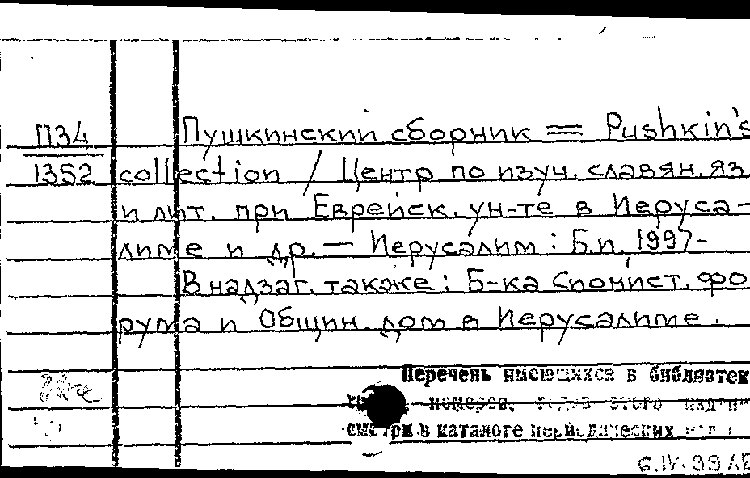 П34 Пушкинский сборник = Pushkin's
1352 collection / Центр по изуч. славян. яз.
и лит. при Еврейск. ун-те в Иеруса-
лиме и др. — Иерусалим : Б.и., 1997-
В надзаг. также: Б-ка Сионист. фо
рума и Общин. дом в Иерусалиме.
Перечень имеющихся в библиотек
номеров,
смотри в каталоге периодических
6.IV.99